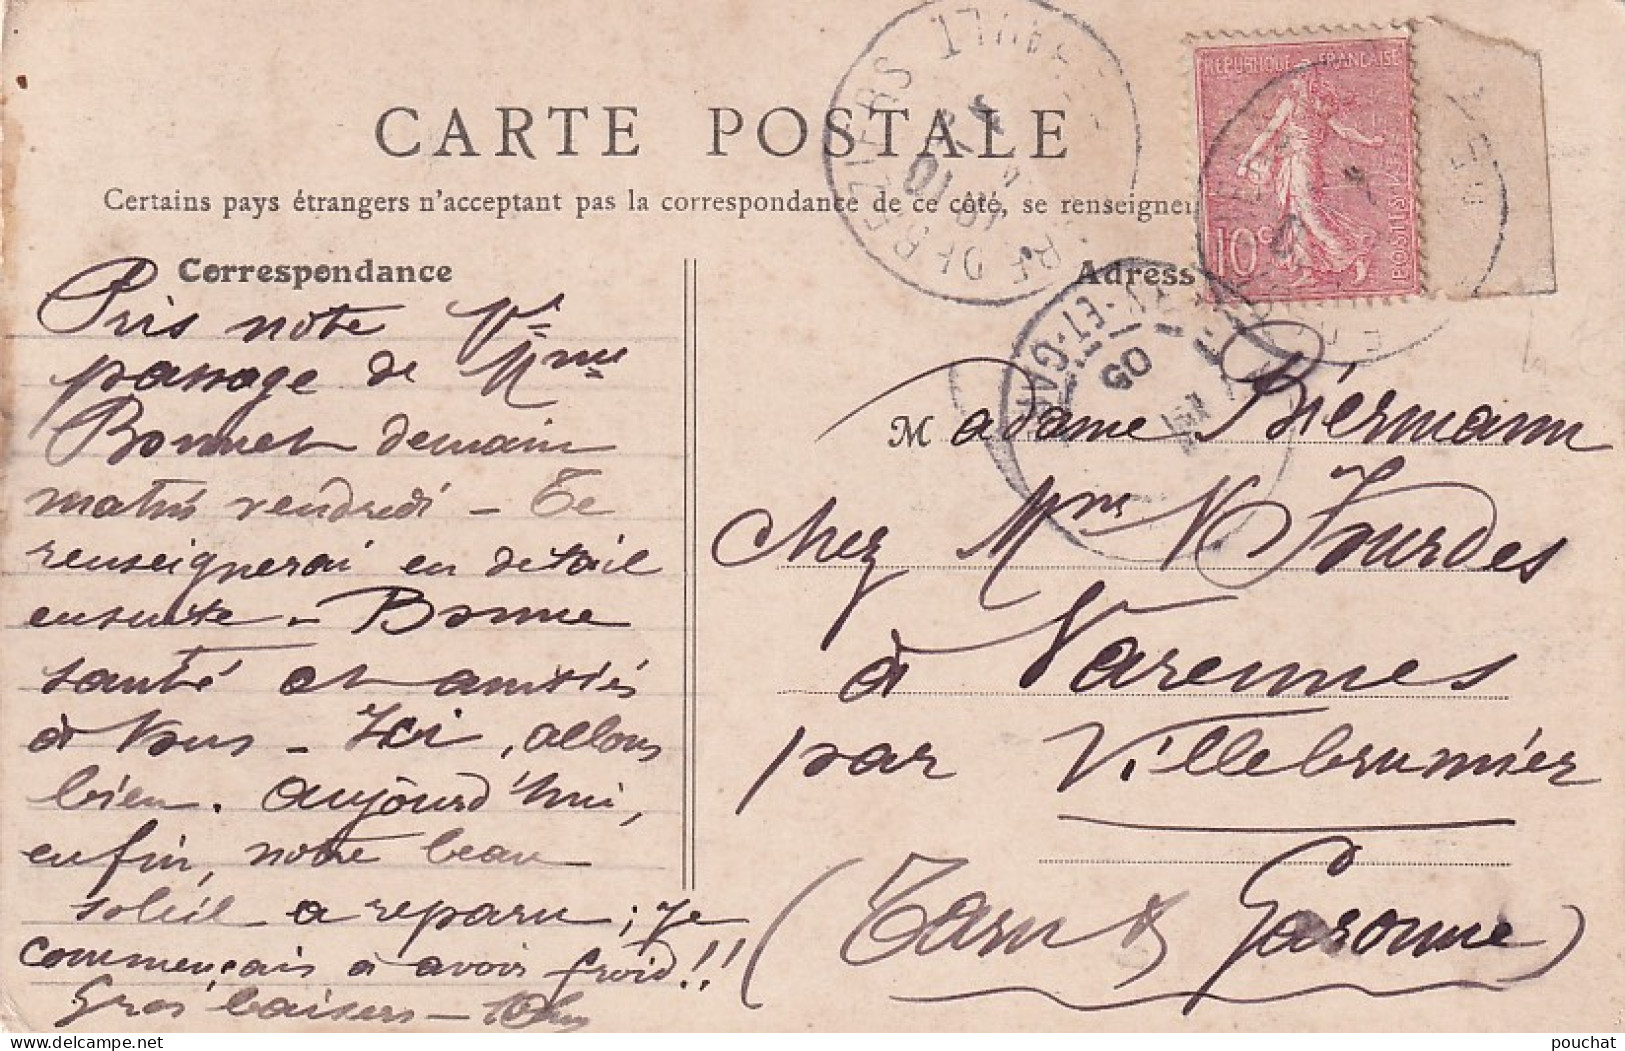 CARTE POSTALE
Certains pays étrangers n'acceptent pas la correspondance de ce côté, se renseigner
Correspondance
Adress
RÉPUBLIQUE FRANÇAISE
10c
POSTES
DE BEZIERS
10
05
ET-GAR
Pris note
passage de Mme
Bonnet demain
matin vendredi - Te
renseignerai en détail
ensuite - Bonne
santé et amitiés
à Vous - Ici, allons
bien. Aujourd'hui,
enfin, notre beau
soleil a reparu ; je
commençais à avoir froid!!
Gros baisers -
Madame Biermann
chez Mrs Fourdes
à Varennes
par Villebrumier
(Tarn & Garonne)
pouchat